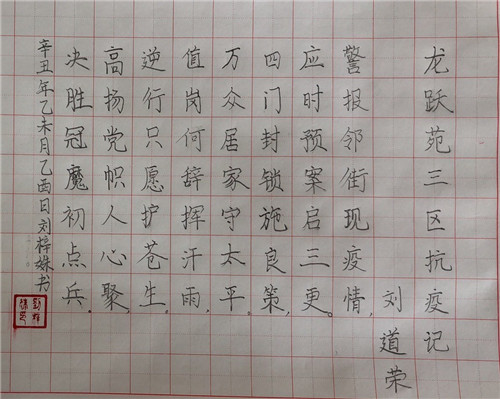 龙跃苑三区抗疫记
刘道荣
警报邻街现疫情，
应时预案启三更。
四门封锁施良策，
万众居家守太平。
值岗何辞挥汗雨，
逆行只愿护苍生。
高扬党帜人心聚，
决胜冠魔初点兵。
辛丑年乙未月乙酉日刘梓姝书